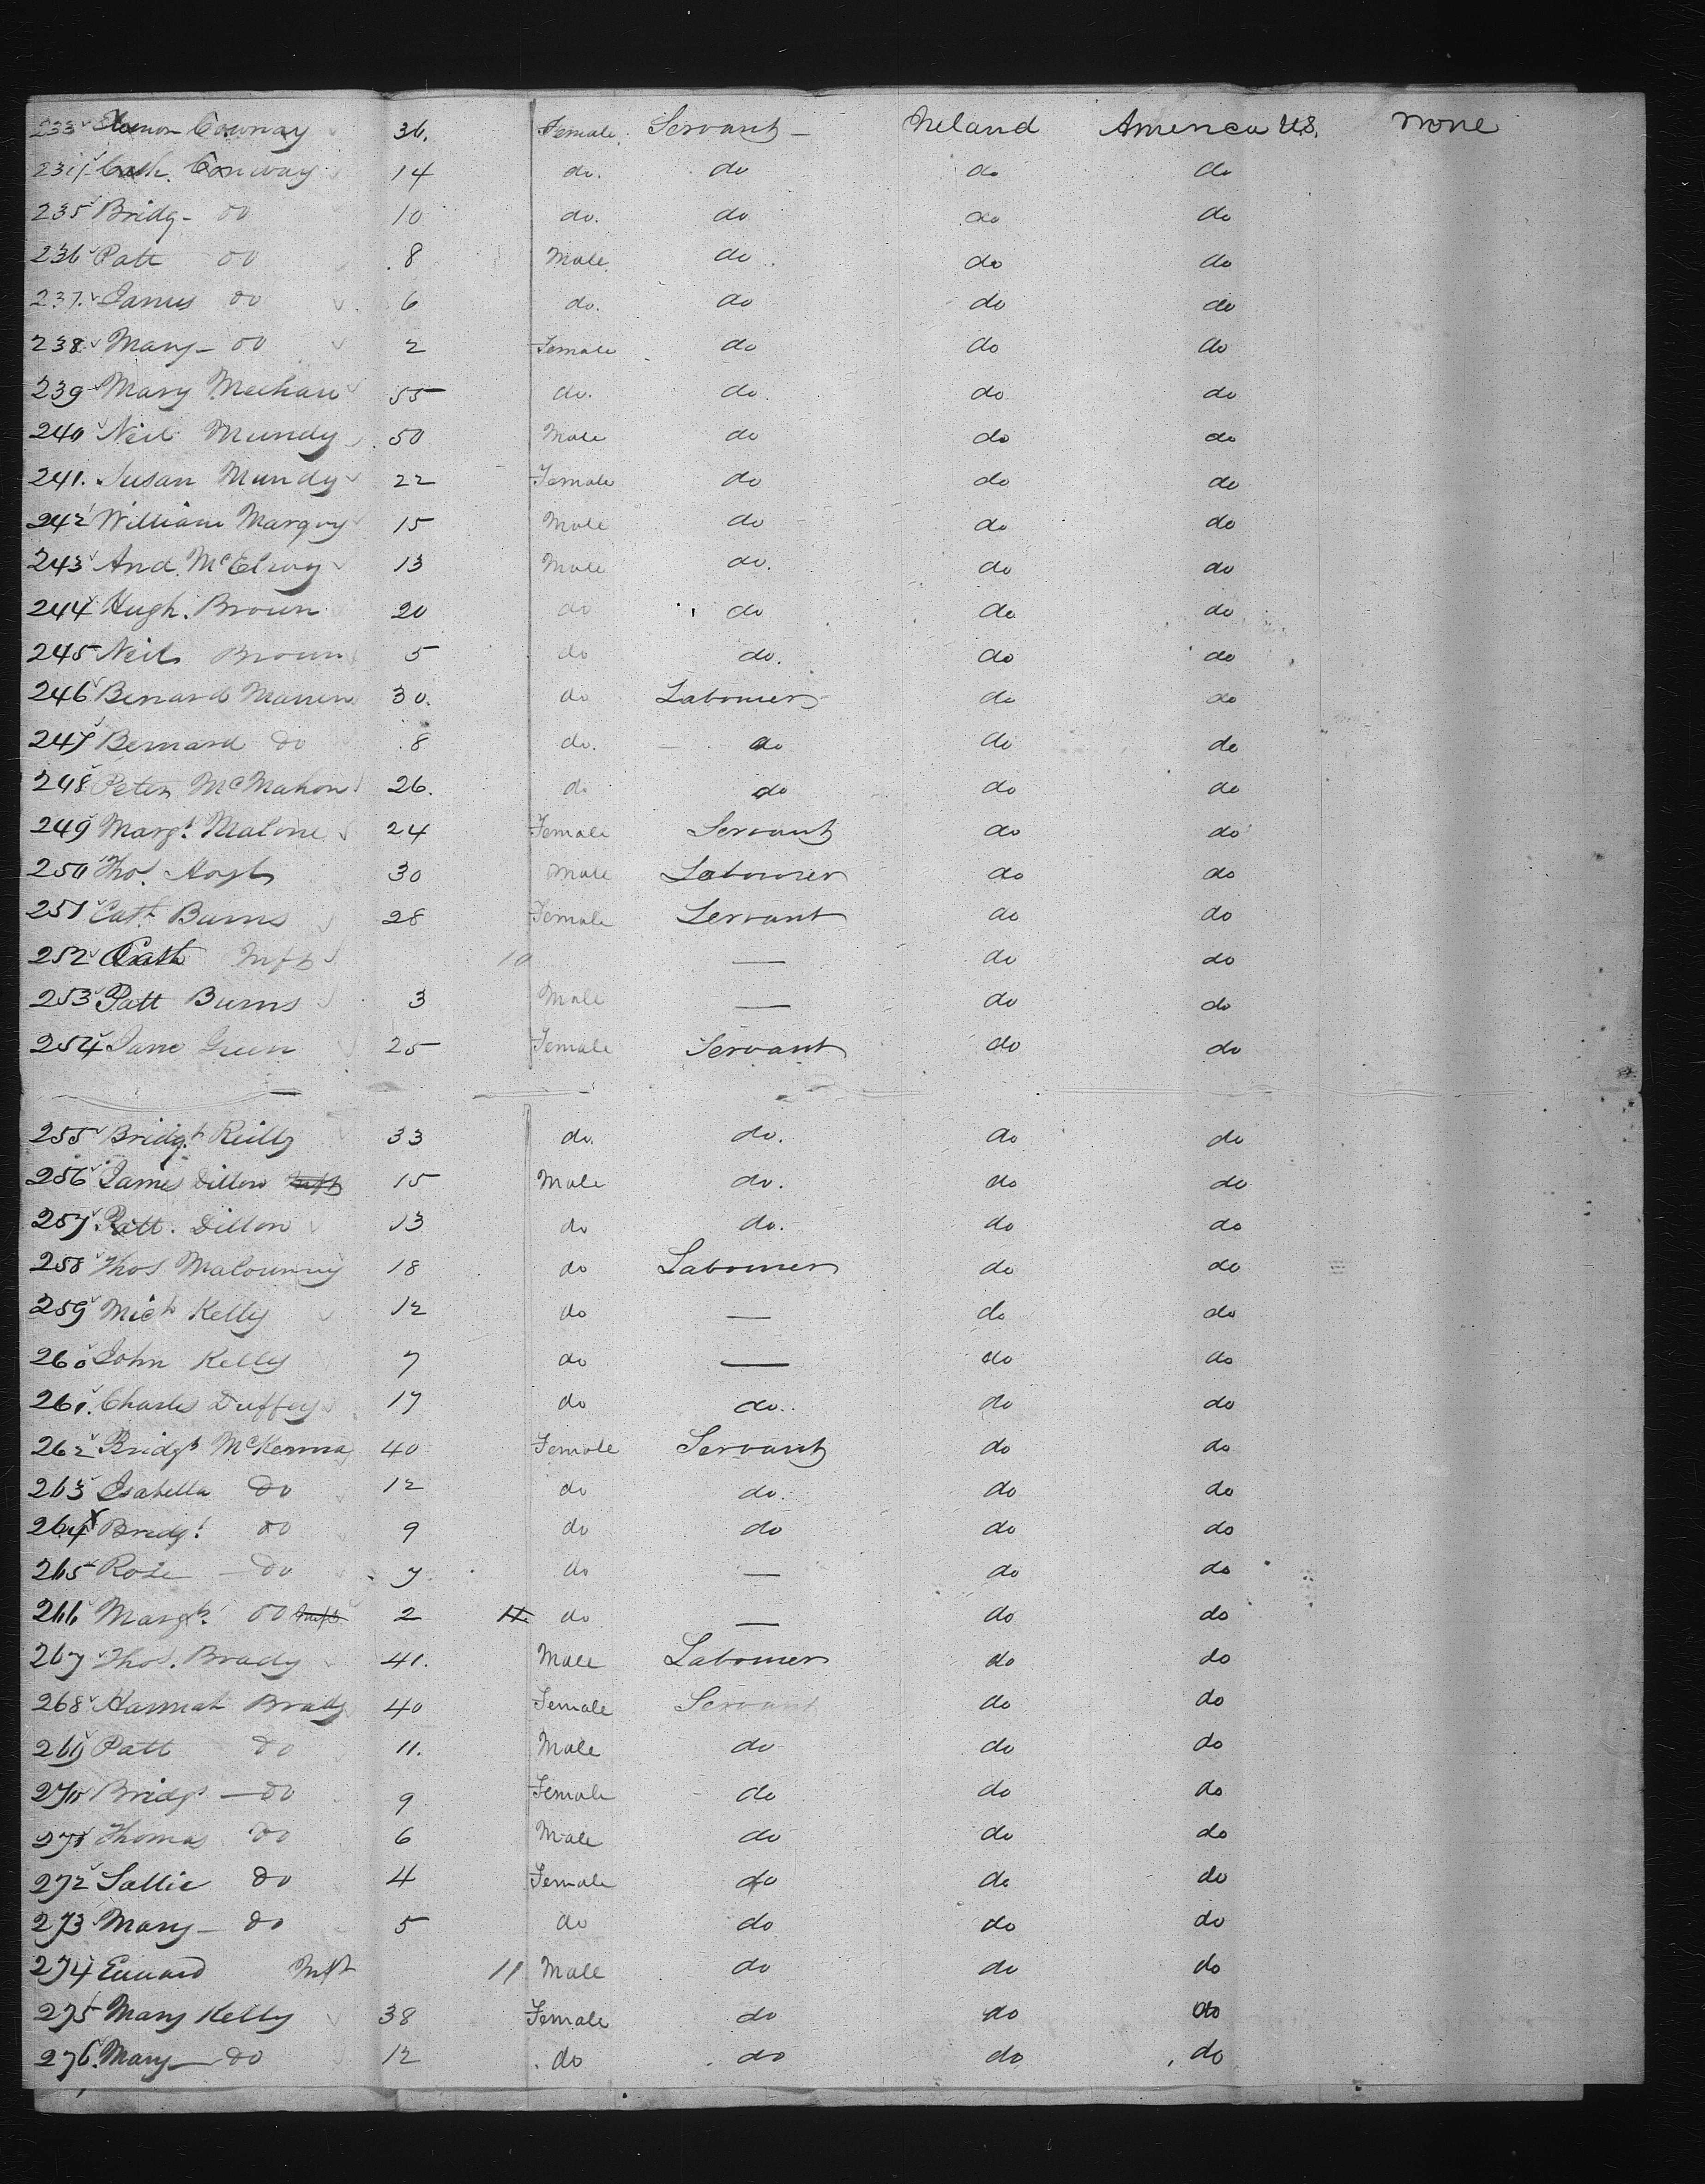 233 Elenor Conway 36. Female. Servant - Ireland America US. none
234 Cath. Conway 14 do. do do do
235 Bridg - do 10 do. do do do
236 Patt do 8 Male do do do
237. James do 6 do. do do do
238 Mary - do 2 Female do do do
239 Mary Meehan 55 do. do do do
240 Neil Mundy 50 Male do do do
241. Susan Mundy 22 Female do do do
242 William 15 Male do do do
243 And. McElroy 13 Male do. do do
244 Hugh. Brown 20 do do do do
245 Neil Brown 5 do do. do do
246 Bernard 30. do Labourer do do
247 Bernard do 8 do. do do do
248 Peter McMahon 26. do do do do
249 Margt. Malone 24 Female Servant do do
250 Thos. 30 Male Labourer do do
251 Cath Burns 28 Female Servant do do
252 Cath Inft 10 — do do
253 Patt Burns 3 Male — do do
254 Jane Green 25 Female Servant do do
255 Bridgt Reilly 33 do. do. do do
256 James Dillon Inft 15 Male do. do do
257. Patt. Dillon 13 do do. do do
258 Thos 18 do Labourer do do
259 Mich Kelly 12 do — do do
260 John Kelly 7 do — do do
261. Charles Duffey 17 do do. do do
262 Bridgt McKenna 40 Female Servant do do
263 Isabella do 12 do do. do do
264 Bridgt do 9 do do do do
265 Rose - do 7 do — do do
266 Margt. do Inft 2 11 do — do do
267 Thos. Brady 41. Male Labourer do do
268 Hannah Brady 40 Female Servant do do
269 Patt do 11. Male do do do
270 Bridgt - do 9 Female do do do
271 Thomas do 6 Male do do do
272 Sallie do 4 Female do do do
273 Mary - do 5 do do do do
274 Edward Inft 11 Male do do do
275 Mary Kelly 38 Female do do do
276. Mary - do 12 do do do do